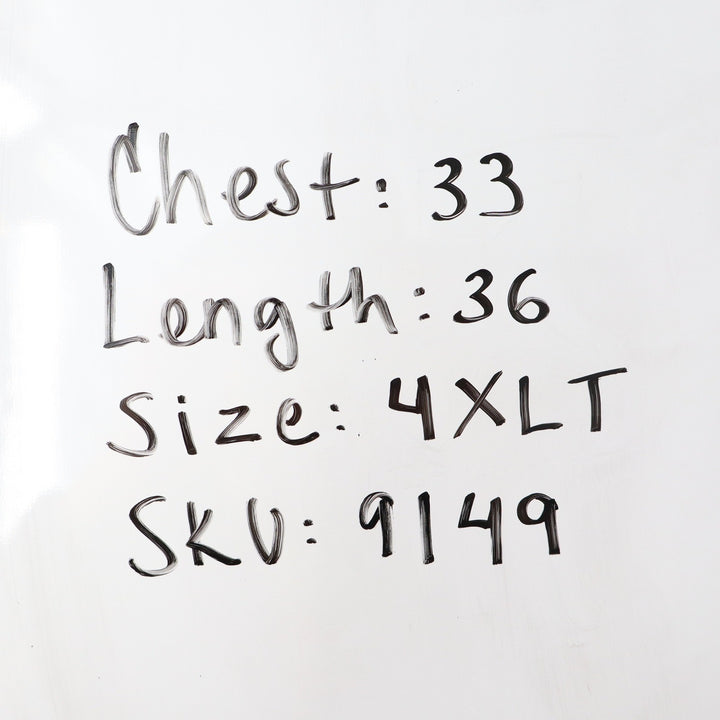 Chest: 33
Length: 36
Size: 4XLT
SKU: 9149